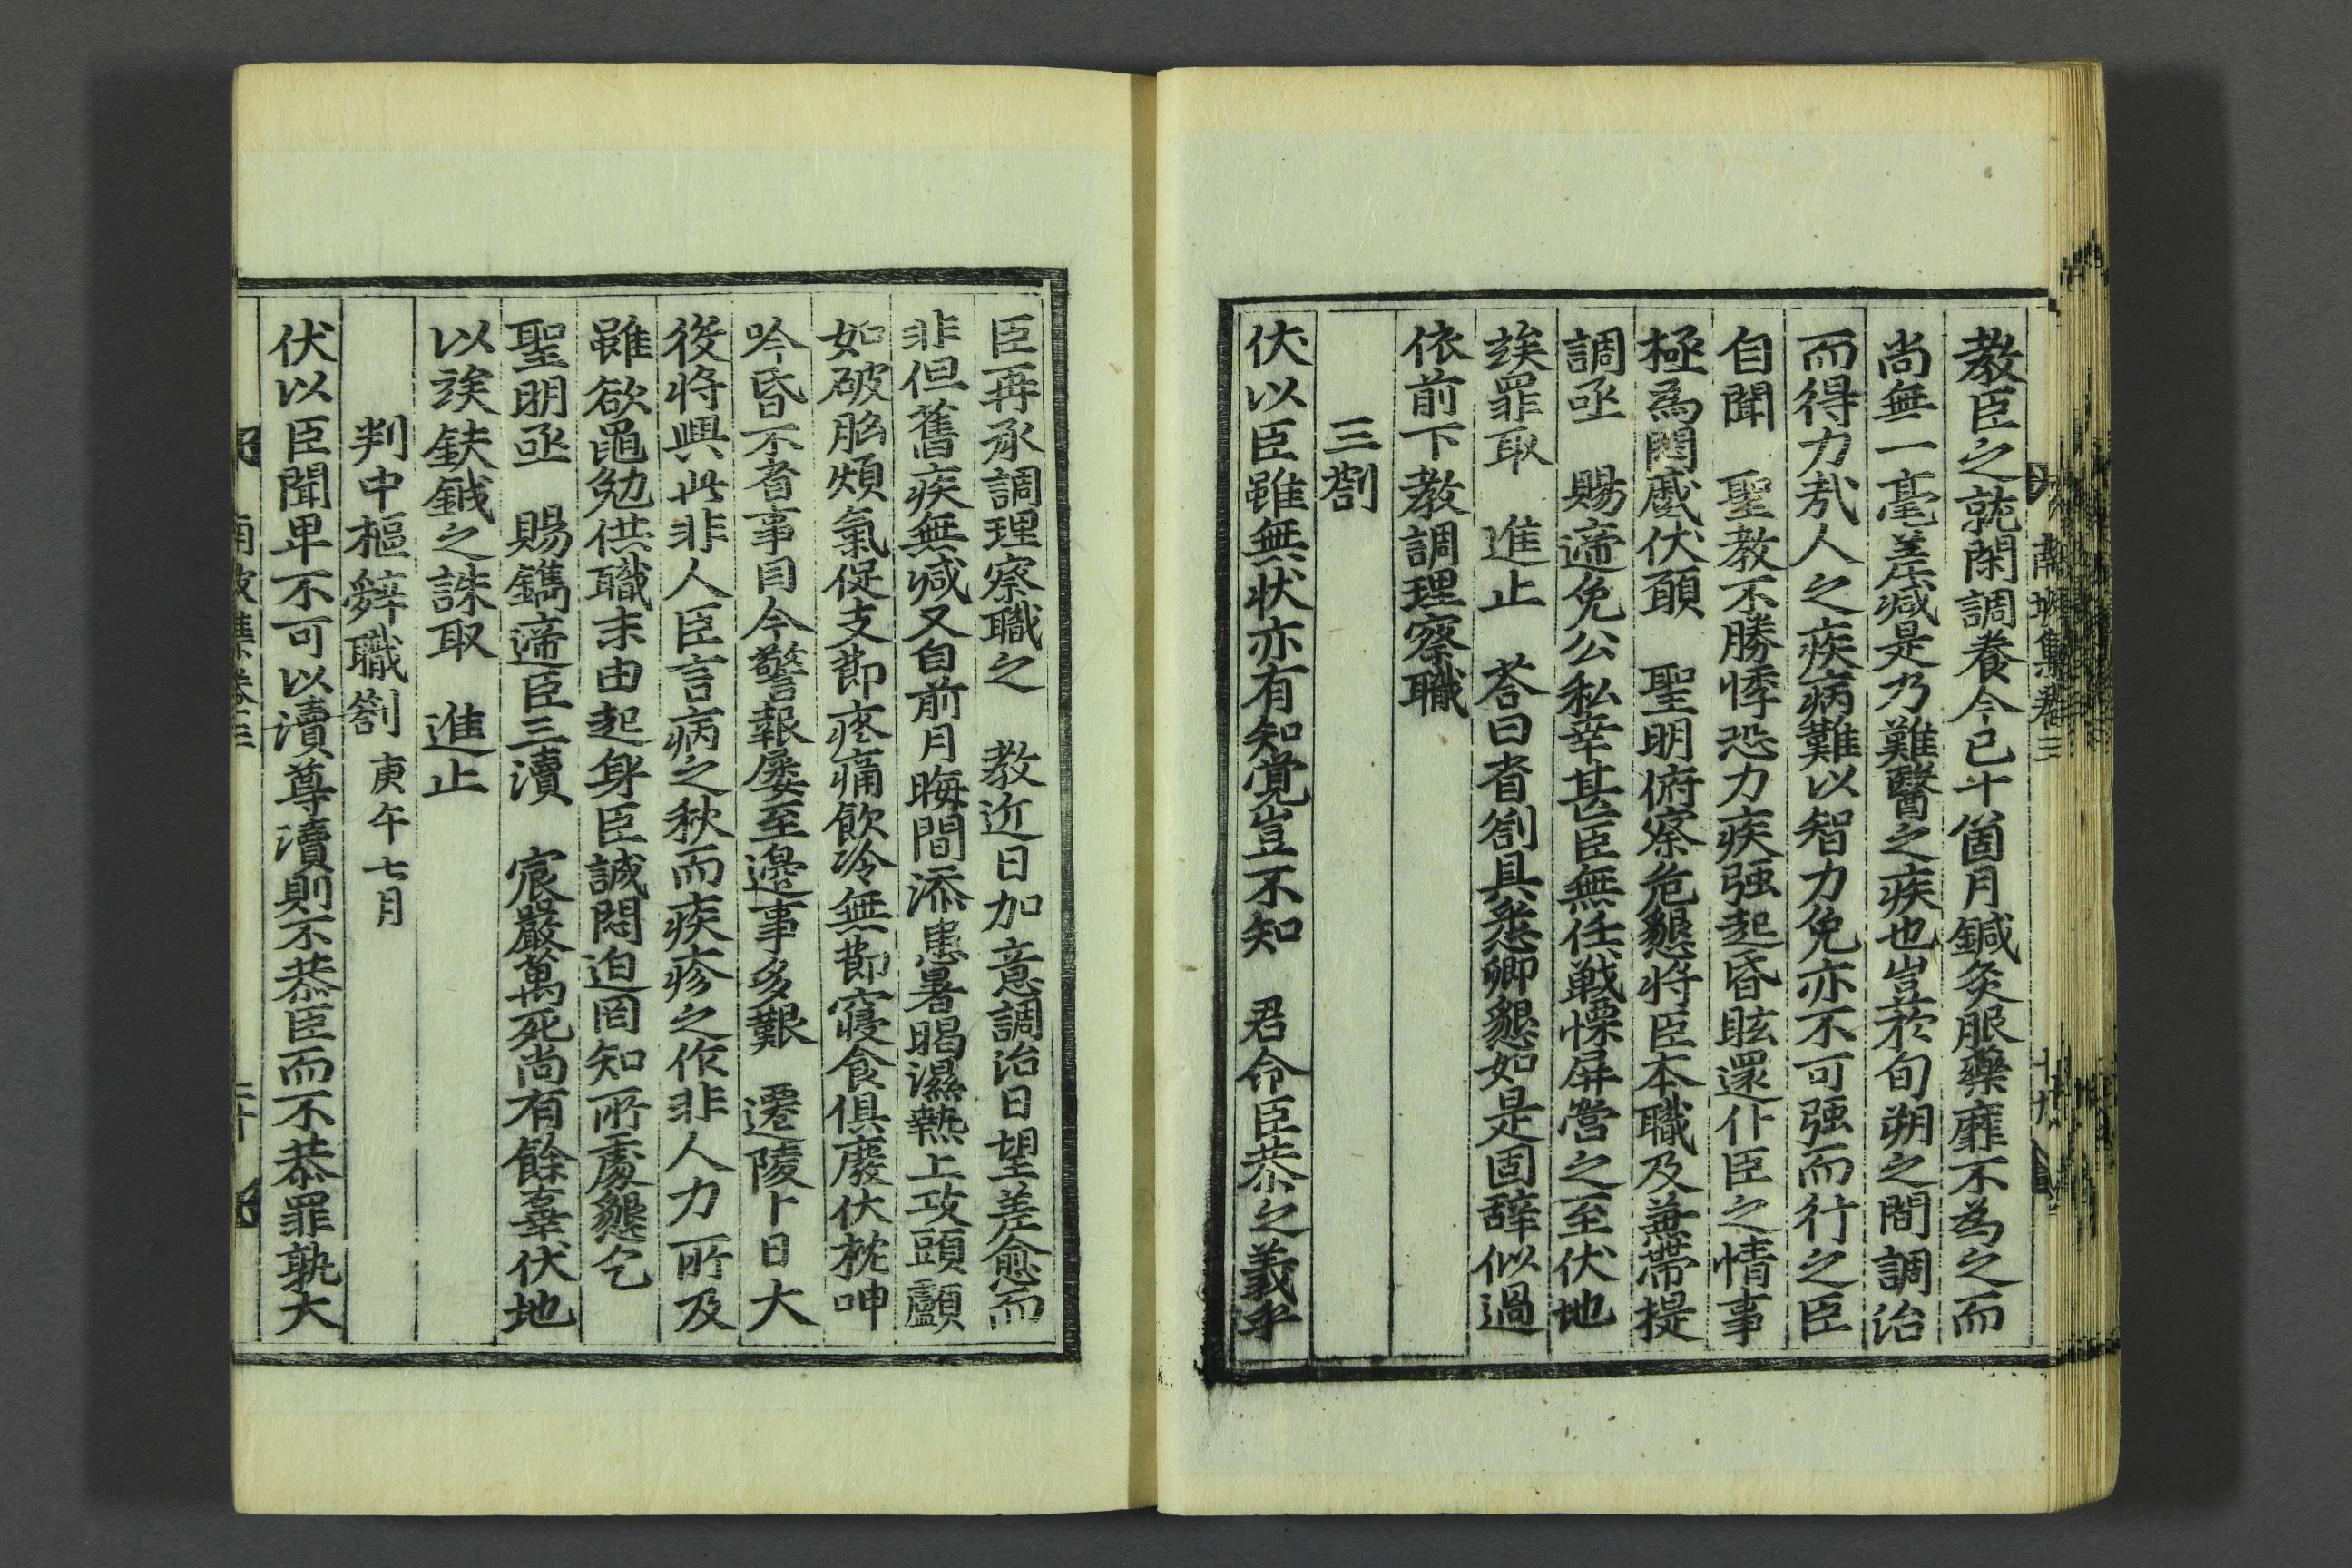 南坡集卷三
教臣之就閑調養今已十箇月鍼灸服藥靡不爲之而
尚無一毫差減是乃難醫之疾也豈於旬朔之間調治
而得力哉人之疾病難以智力免亦不可强而行之臣
自聞 聖教不勝悸恐力疾强起昏眩還仆臣之情事
極爲悶慼伏願 聖明俯察危懇將臣本職及兼帶提
調亟 賜遞免公私幸甚臣無任戰慄屏營之至伏地
竢罪取 進止 荅曰省劄具悉卿懇如是固辞似過
依前下教調理察職
三劄
伏以臣雖無状亦有知覚豈不知 君命臣恭之義乎
臣再承調理察職之 教近日加意調治日望差愈而
非但舊疾無減又自前月晦間添患暑暍濕熱上攻頭顱
如破胸煩氣促支節疼痛飮冷無節寢食俱廢伏枕呻
吟昏不省事目今警報屡至邊事多艱 遷陵卜日大
役將興此非人臣言病之秋而疾疹之作非人力所及
雖欲黽勉供職末由起身臣誠悶迫罔知所處懇乞
聖明亟 賜鐫遞臣三瀆 宸嚴萬死尚有餘辜伏地
以竢鈇鉞之誅取 進止
判中樞辭職劄 庚午七月
伏以臣聞卑不可以瀆尊瀆則不恭臣而不恭罪孰大